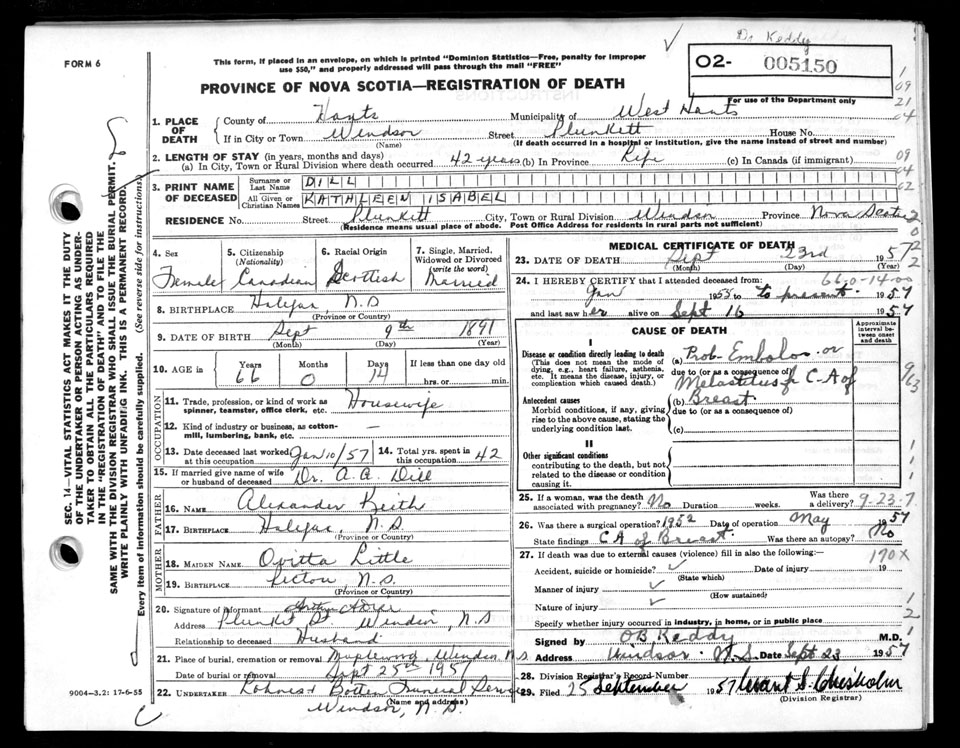 Dr Keddy
FORM 6
This form, if placed in an envelope, on which is printed "Dominion Statistics—Free, penalty for improper
use $50," and properly addressed will pass through the mail "FREE"
02- 005150
For use of the Department only
PROVINCE OF NOVA SCOTIA—REGISTRATION OF DEATH
1. PLACE OF DEATH
County of Hants Municipality of West Hants
If in City or Town Windsor Street Plunkett House No.
(Name) (If death occurred in a hospital or institution, give the name instead of street and number)
2. LENGTH OF STAY (in years, months and days)
(a) In City, Town or Rural Division where death occurred 42 years (b) In Province Life (c) In Canada (if immigrant)
3. PRINT NAME OF DECEASED
Surname or Last Name DILL
All Given or Christian Names KATHLEEN ISABEL
RESIDENCE No. Street Plunkett City, Town or Rural Division Windsor Province Nova Scotia
(Residence means usual place of abode. Post Office Address for residents in rural parts not sufficient)
4. Sex Female
5. Citizenship (Nationality) Canadian
6. Racial Origin Scottish
7. Single, Married, Widowed or Divorced (write the word) Married
8. BIRTHPLACE Halifax N.S
(Province or Country)
9. DATE OF BIRTH Sept 9th 1891
(Month) (Day) (Year)
10. AGE in Years 66 Months 0 Days 14 If less than one day old
hrs. or min.
OCCUPATION
11. Trade, profession, or kind of work as
spinner, teamster, office clerk, etc. Housewife
12. Kind of industry or business, as cotton-
mill, lumbering, bank, etc. —
13. Date deceased last worked at this occupation Jan 10/57
14. Total yrs. spent in this occupation 42
15. If married give name of wife
or husband of deceased Dr. A.A. Dill
FATHER
16. NAME Alexander Keith
17. BIRTHPLACE Halifax, N.S.
(Province or Country)
MOTHER
18. MAIDEN NAME Little
19. BIRTHPLACE Pictou, N.S.
(Province or Country)
20. Signature of informant
Address Plunket St Windsor, N.S
Relationship to deceased Husband
21. Place of burial, cremation or removal Maplewood, Windsor N.S.
Date of burial or removal Sept 25th 1957
22. UNDERTAKER Funeral Service
(Name and address)
Windsor, N.S.
9004—3.2: 17-6-55
MEDICAL CERTIFICATE OF DEATH
23. DATE OF DEATH Sept 23rd 1957
(Month) (Day) (Year)
660-14-00
24. I HEREBY CERTIFY that I attended deceased from:
Jan 1953 to present 1957
and last saw her alive on Sept 16 1957
CAUSE OF DEATH
Approximate interval between onset and death
I
Disease or condition directly leading to death
(This does not mean the mode of
dying, e.g., heart failure, asthenia,
etc. It means the disease, injury, or
complication which caused death.)
(a) Prob- Embolos or
due to (or as a consequence of)
C-A of
(b) Breast
due to (or as a consequence of)
(c)
Antecedent causes
Morbid conditions, if any, giving
rise to the above cause, stating the
underlying condition last.
II
Other significant conditions
contributing to the death, but not
related to the disease or condition
causing it.
25. If a woman, was the death
associated with pregnancy? No Duration weeks. Was there a delivery? 9-23-7
26. Was there a surgical operation? 1952 Date of operation May 1957
State findings CA of Breast. Was there an autopsy? No
27. If death was due to external causes (violence) fill in also the following:—
170X
Accident, suicide or homicide? Date of injury 19
(State which)
Manner of injury
(How sustained)
Nature of injury
Specify whether injury occurred in industry, in home, or in public place
Signed by OB Keddy M.D.
Address Windsor. N.S. Date Sept 23 1957
28. Division Registrar's Record Number
29. Filed 25 September 1957 Grant S. Chisholm
(Division Registrar)
SEC. 14—VITAL STATISTICS ACT MAKES IT THE DUTY
OF THE UNDERTAKER OR PERSON ACTING AS UNDER-
TAKER TO OBTAIN ALL THE PARTICULARS REQUIRED
IN THE "REGISTRATION OF DEATH" AND TO FILE THE
SAME WITH THE DIVISION REGISTRAR WHO SHALL ISSUE THE BURIAL PERMIT.
WRITE PLAINLY WITH UNFADING INK. THIS IS A PERMANENT RECORD.
Every item of information should be carefully supplied. (See reverse side for instructions)